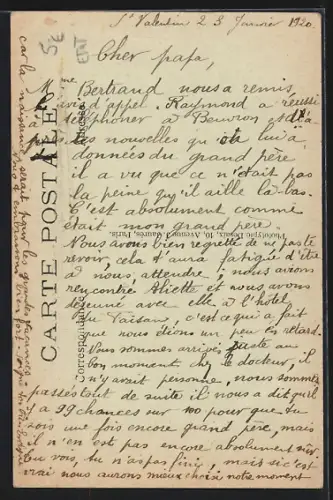 St Valentin 23 Janvier 1920
5€
Cher papa,
Mme Bertrand nous a remis
d'appel. Raymond a réussi
à téléphoner à Beuvron et d'a
les nouvelles qu'on lui a
données du grand père
il a vu que ce n'était pas
la peine qu'il aille là-bas.
C'est absolument comme
était mon grand père.
Nous avons bien regretté de ne pas te
revoir, cela t'aura fatigué d'être
à nous attendre; nous avions
rencontré Aliette et nous avons
déjeuné avec elle à l'hôtel
du Faisan, c'est ce qui a fait
que nous étions un peu en retard.
Nous sommes arrivés juste au
bon moment chez le docteur, il
n'y avait personne, nous sommes
passés tout de suite il nous a dit qu'il
y a 99 chances sur 100 pour que tu
sois une fois encore grand père, mais
il n'en est pas encore absolument sûr.
Tu vois, tu n'as pas fini, mais si c'est
vrai nous aurons mieux choisi notre moment
car la naissance serait dans les grandes vacances
CARTE POSTALE
Correspondance
Adresse